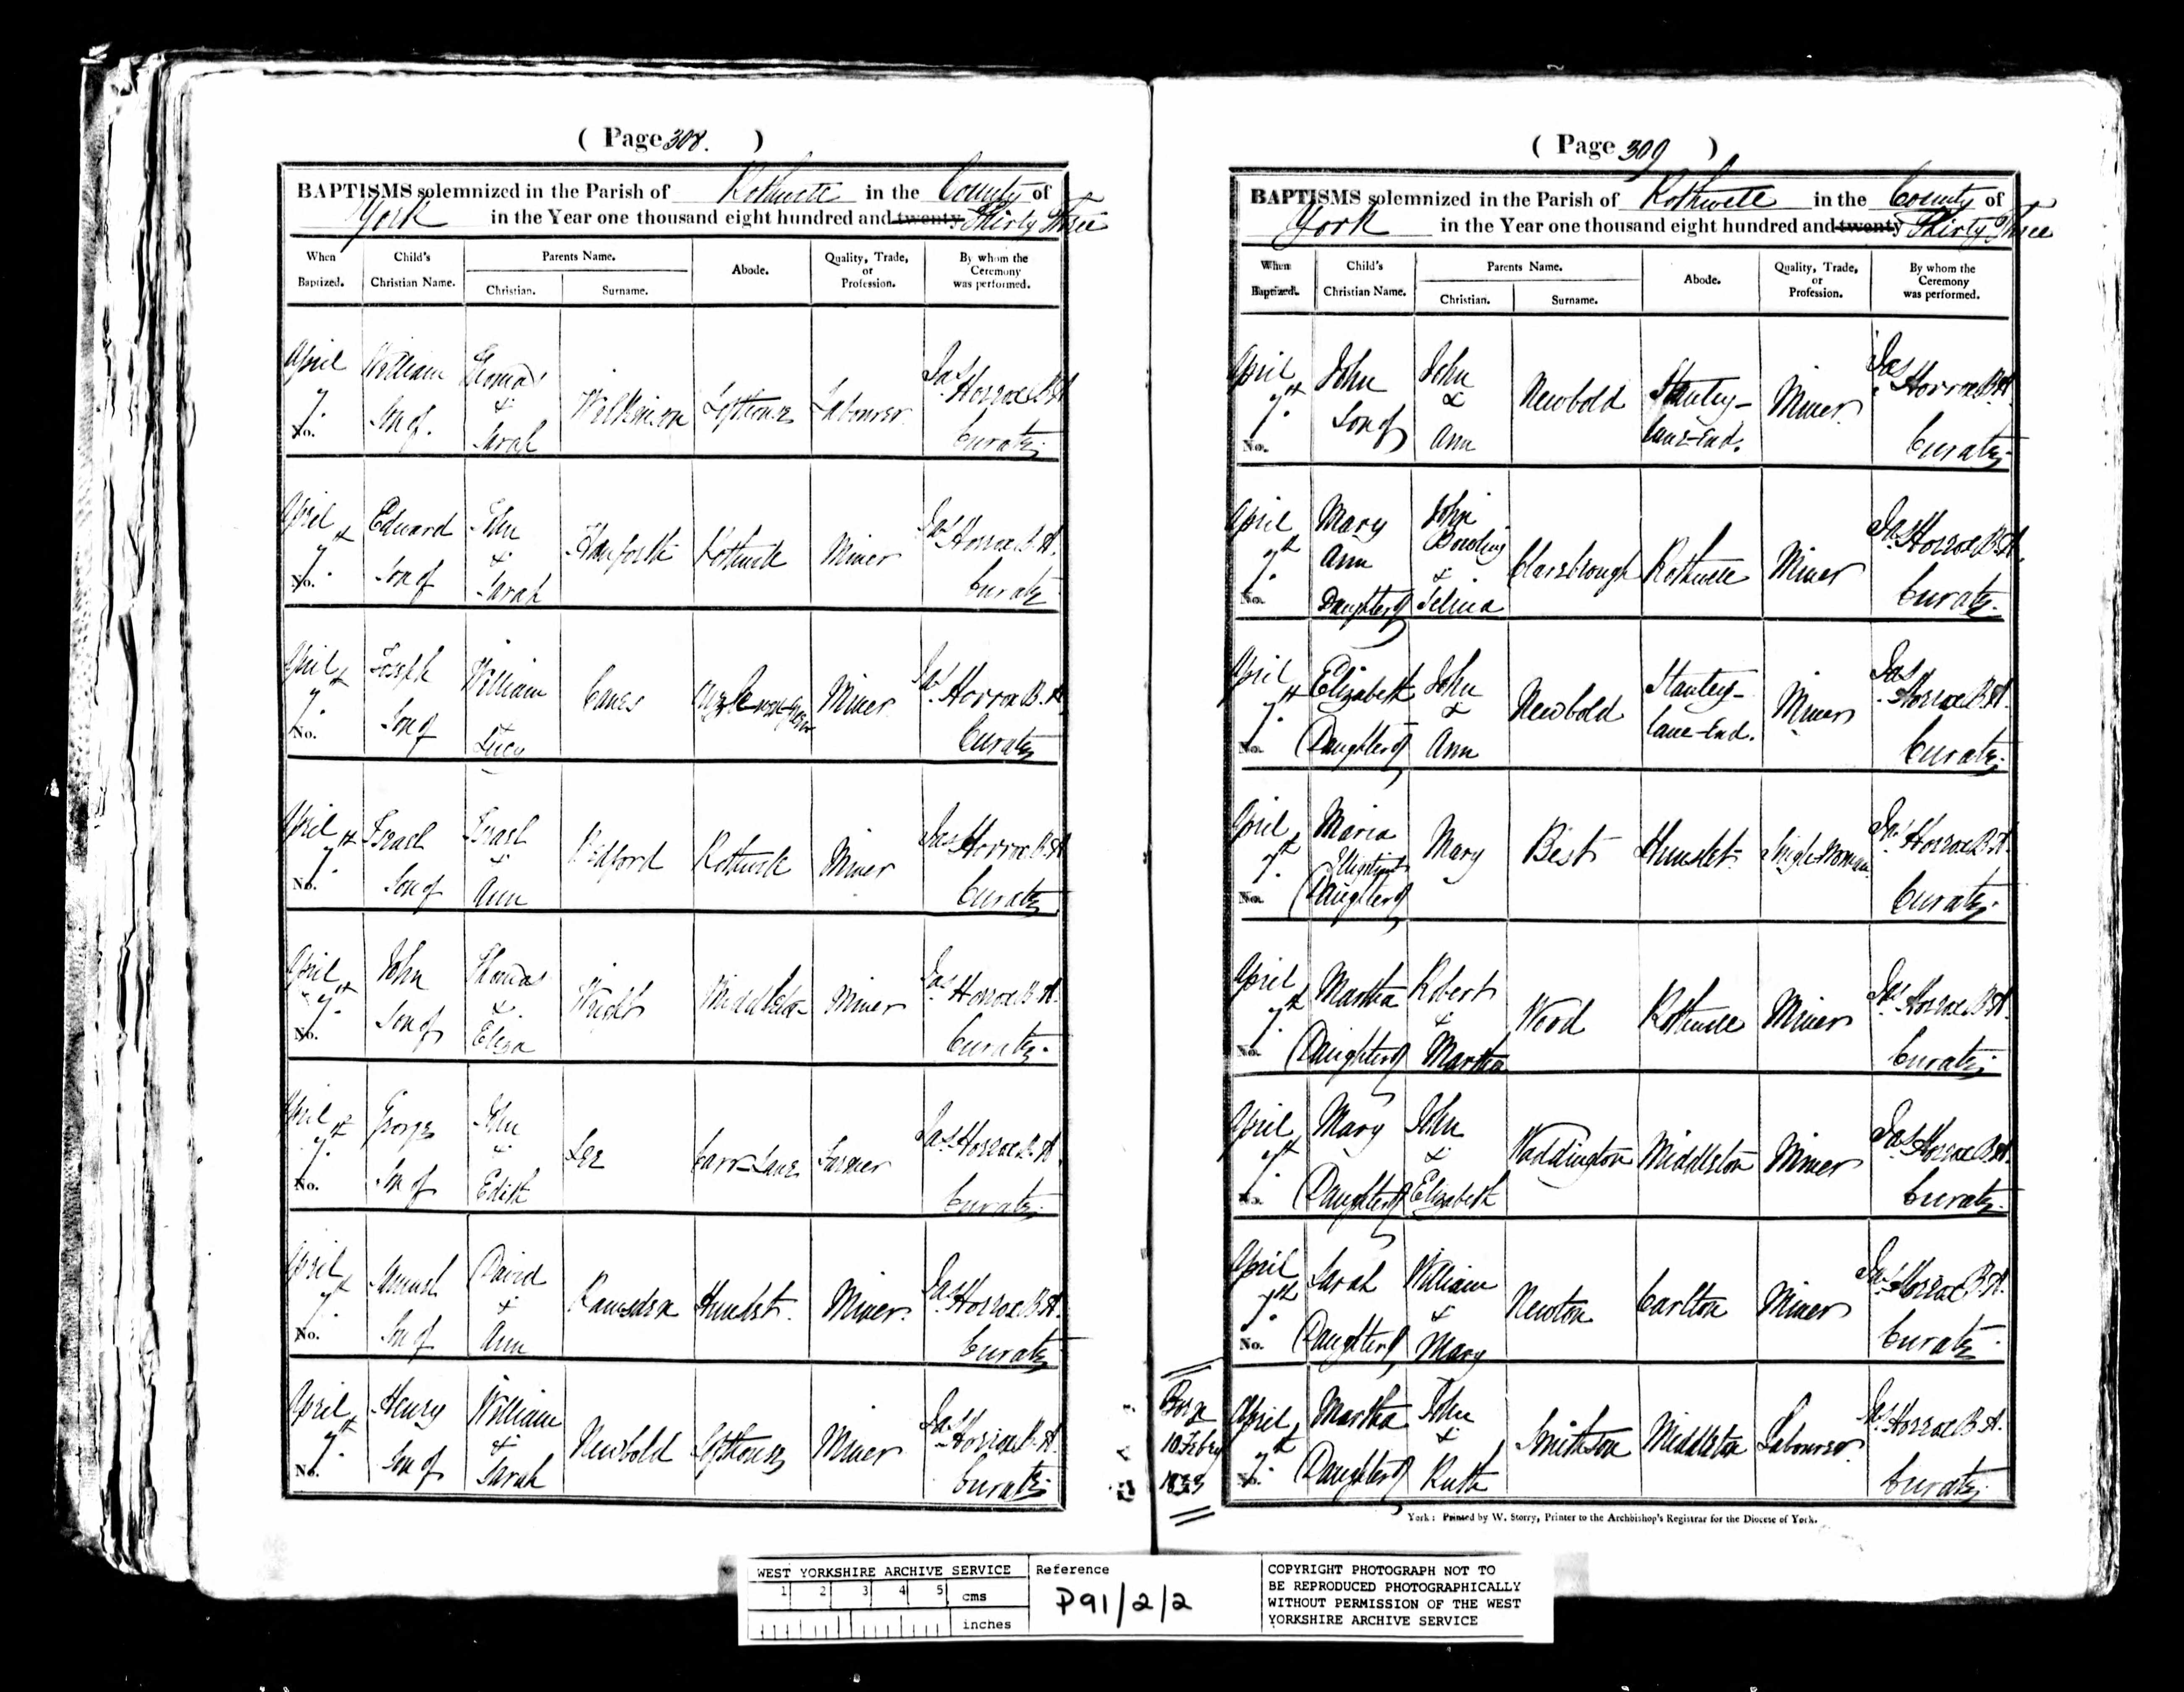 ( Page 308. )
BAPTISMS solemnized in the Parish of Rothwell in the County of
York in the Year one thousand eight hundred and twenty Thirty Three
When Baptized. Child's Christian Name. Parents Name. Christian. Surname. Abode. Quality, Trade, or Profession. By whom the Ceremony was performed.
April 7. No. William Son of Thomas & Sarah Wilkinson Lofthouse Labourer Jas Horrox B.A. Curate.
April 7th. No. Edward Son of John & Sarah Rothwell Miner Jas Horrox B.A. Curate
April 7th. No. Joseph Son of William & Lucy Miner Jas Horrox B.A. Curate
April 7th. No. Israel Son of Israel & Ann Bedford Rothwell Miner Jas Horrox B.A. Curate
April 7th. No. John Son of Thomas & Eliza Wright Middleton Miner Jas Horrox B.A. Curate.
April 7th. No. George Son of John & Edith Lee Carr-Lane Farmer Jas Horrox B.A. Curate.
April 7th. No. Samuel Son of David & Ann Ramsden Hunslet. Miner. Jas Horrox B.A. Curate
April 7th. No. Henry Son of William & Sarah Newbold Lofthouse Miner Jas Horrox B.A. Curate.
( Page 309 )
BAPTISMS solemnized in the Parish of Rothwell in the County of
York in the Year one thousand eight hundred and twenty Thirty Three
When Baptized. Child's Christian Name. Parents Name. Christian. Surname. Abode. Quality, Trade, or Profession. By whom the Ceremony was performed.
April 7th. No. John Son of John & Ann Newbold Stanley-lane-End. Miner. Jas Horrox B.A. Curate.
April 7th. No. Mary Ann Daughter of John Bowling & Selina Clarebrough Rothwell Miner Jas Horrox B.A. Curate.
April 7th. No. Elizabeth Daughter of John & Ann Newbold Stanley-lane-End. Miner Jas Horrox B.A. Curate.
April 7th. No. Maria Illegitimate Daughter of Mary Best Hunslet Single Woman. Jas Horrox B.A. Curate.
April 7th. No. Martha Daughter of Robert & Martha Wood Rothwell Miner Jas Horrox B.A. Curate.
April 7th. No. Mary Daughter of John & Elizabeth Waddington Middleton Miner Jas Horrox B.A. Curate.
April 7th. No. Sarah Daughter of William & Mary Newton Carlton Miner Jas Horrox B.A. Curate.
Born 10 Febry 1833 April 7th. No. Martha Daughter of John & Ruth Smithson Middleton Labourer. Jas Horrox B.A. Curate.
York: Printed by W. Storry, Printer to the Archbishop's Registrar for the Diocese of York.
WEST YORKSHIRE ARCHIVE SERVICE
1 2 3 4 5 cms
inches
Reference
P91/2/2
COPYRIGHT PHOTOGRAPH NOT TO
BE REPRODUCED PHOTOGRAPHICALLY
WITHOUT PERMISSION OF THE WEST
YORKSHIRE ARCHIVE SERVICE